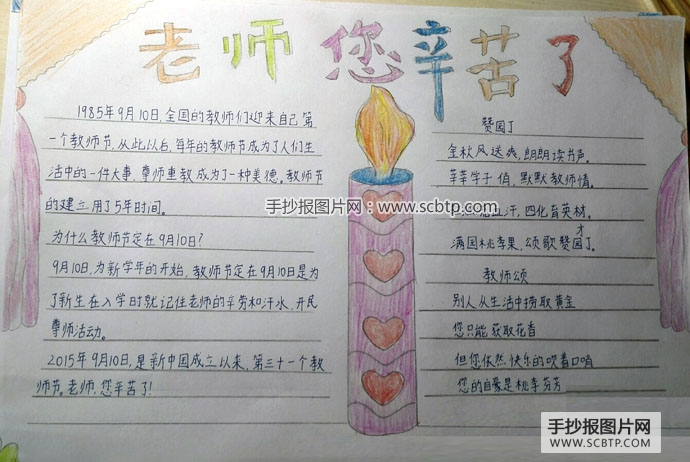 老师您辛苦了
1985年9月10日,全国的教师们迎来自己第
一个教师节,从此以后,每年的教师节成为了人们生
活中的一件大事,尊师重教成为了一种美德。教师节
的建立用了5年时间。
为什么教师节定在9月10日?
9月10日,为新学年的开始,教师节定在9月10日是为
了新生在入学时就记住老师的辛劳和汗水,开民
尊师活动。
2015年9月10日,是新中国成立以来,第三十一个教
师节。老师,您辛苦了!
赞园丁
金秋风送爽,朗朗读书声。
莘莘学子值,默默教师情。
汗,四化育英材。
才
满园桃李果,颂歌赞园丁。
教师颂
别人从生活中捞取黄金
您只能获取花香
但您依然快乐的吹着口哨
您的自豪是桃李芬芳
手抄报图片网:www.scbtp.com
手抄报图片网
WWW.SCBTP.COM